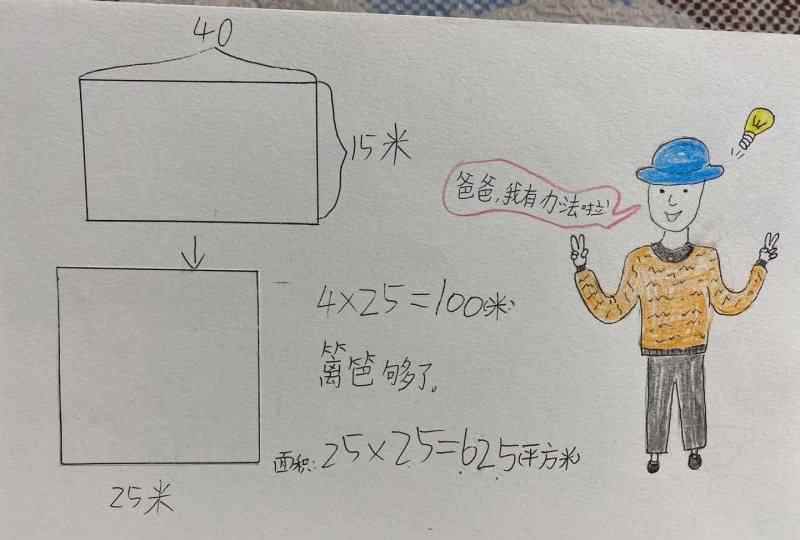 40
15米
爸爸,我有办法啦!
4×25=100(米)
篱笆够了。
面积:25×25=625(平方米)
25米